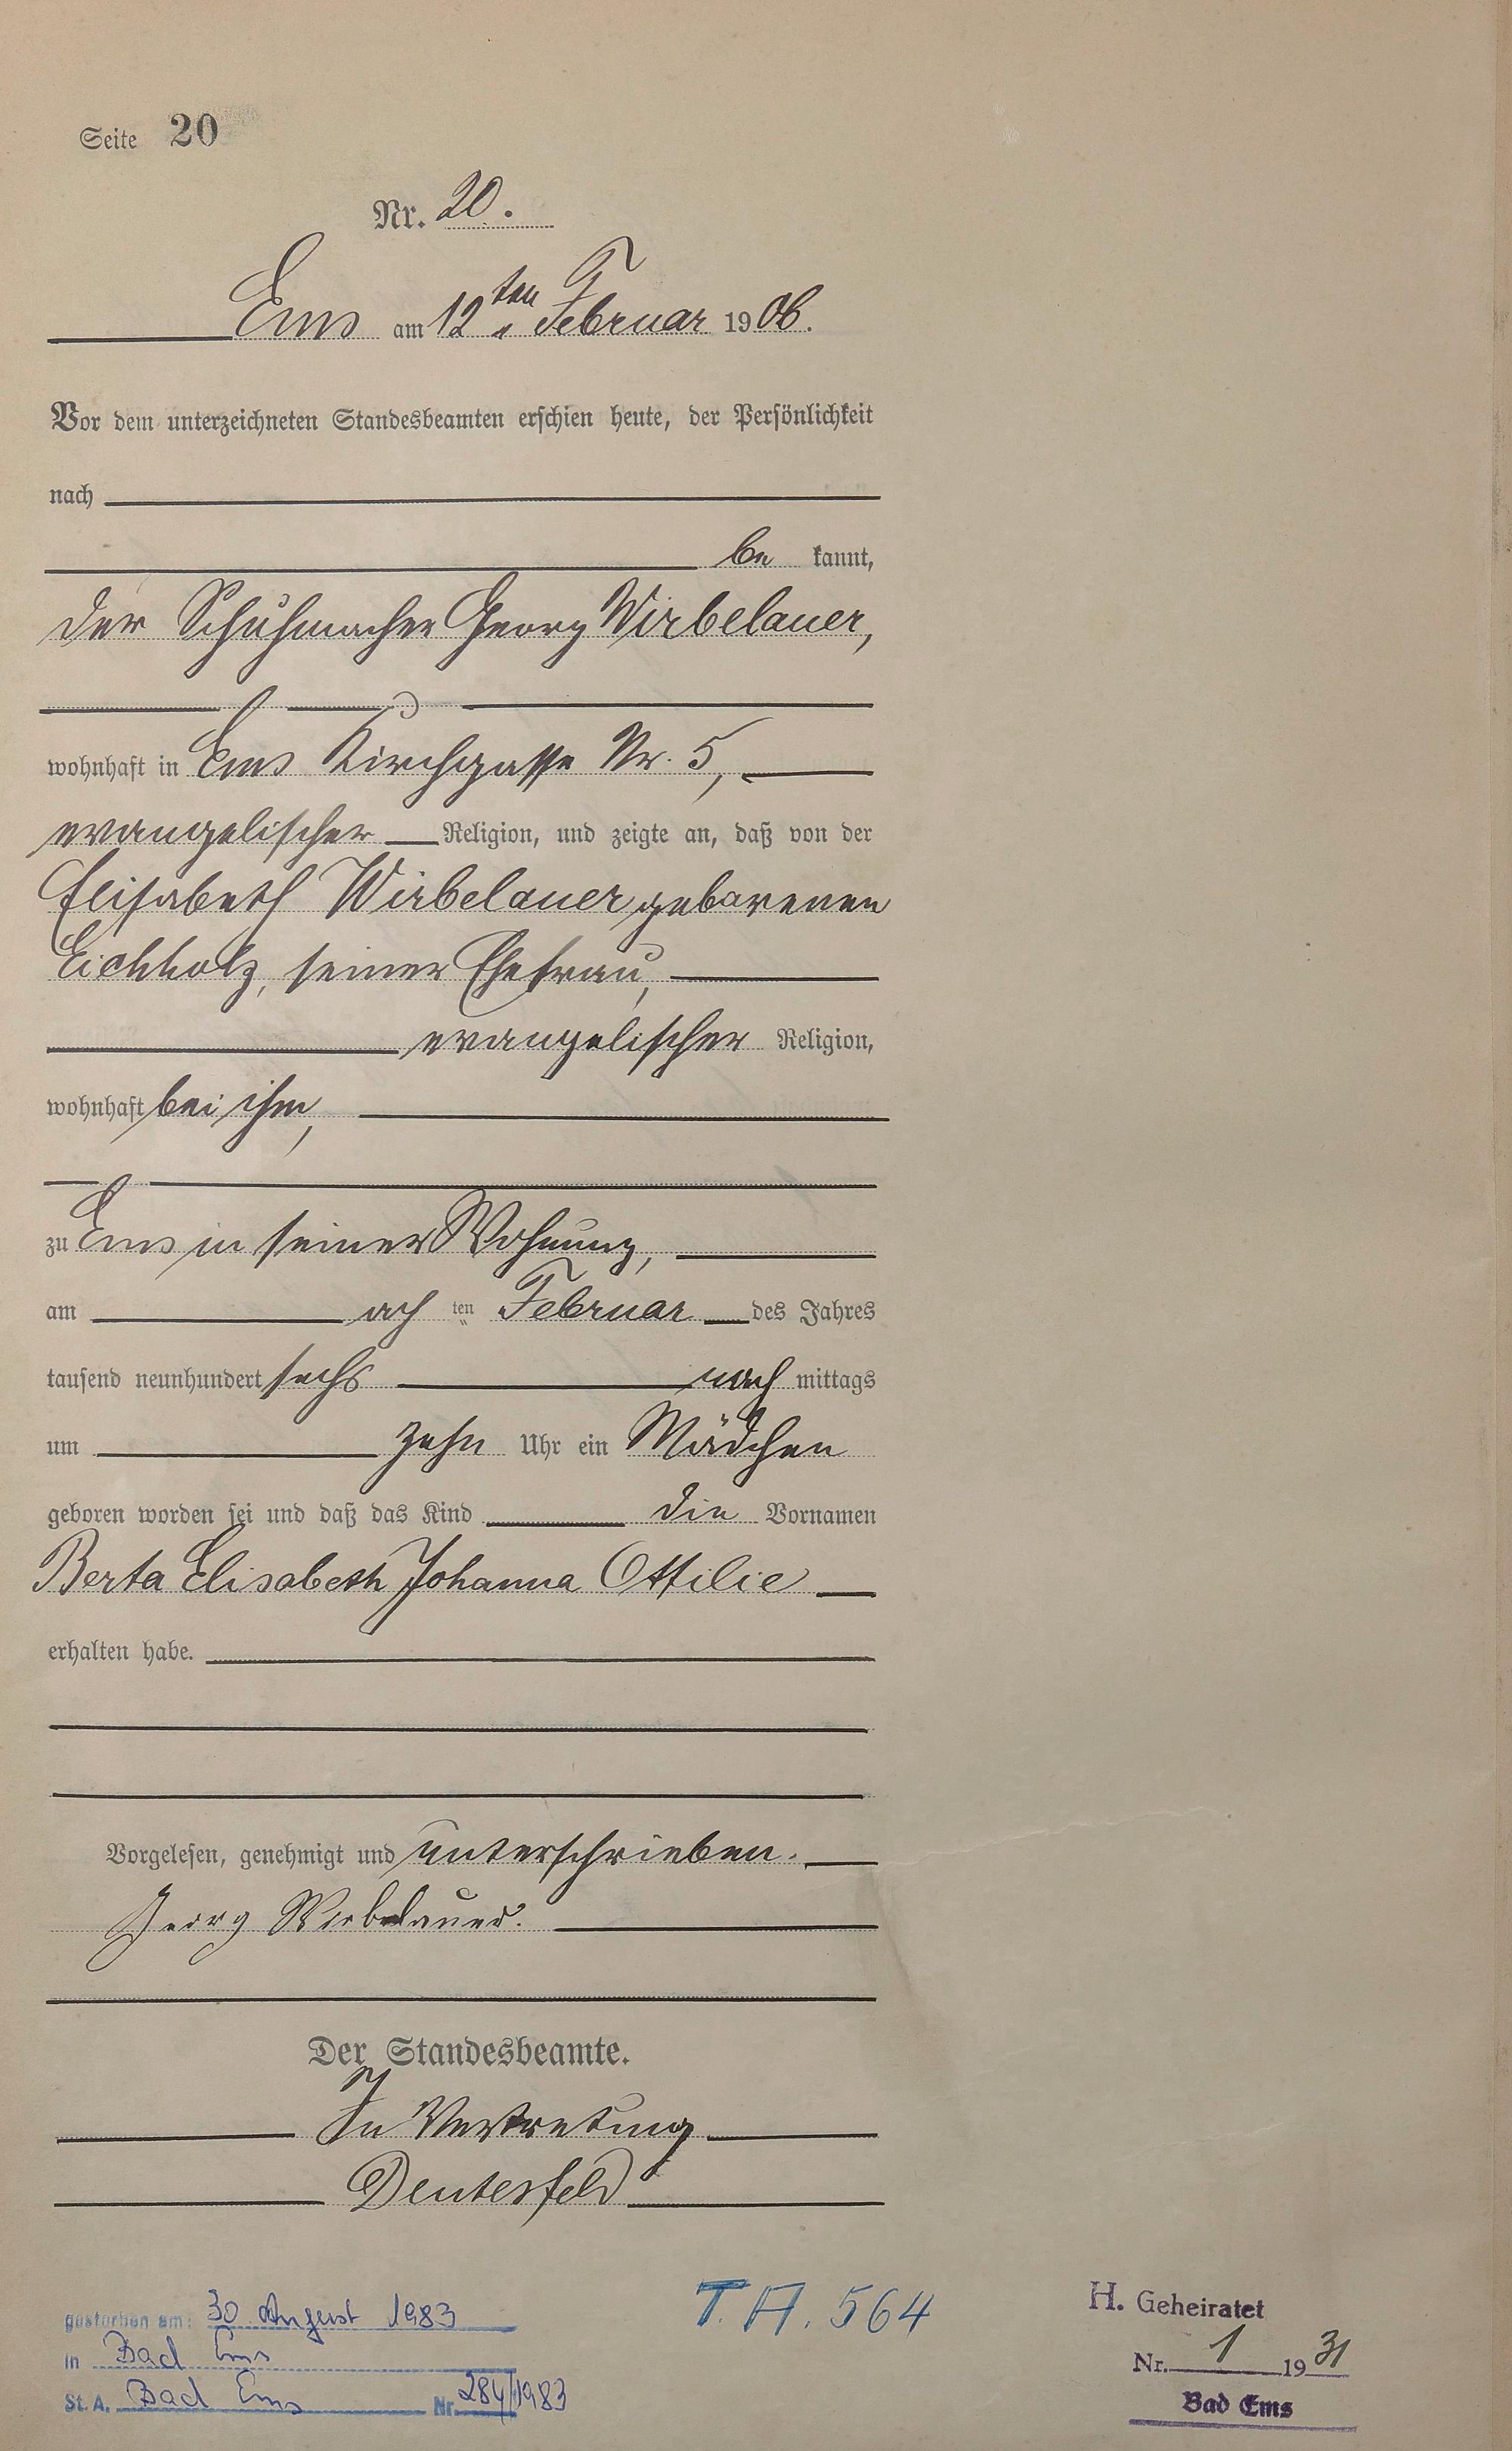 Seite 20
Nr. 20.
Ems am 12ten Februar 1906.
Vor dem unterzeichneten Standesbeamten erschien heute, der Persönlichkeit
nach
be kannt,
der Schuhmacher Georg Wirbelauer,
wohnhaft in Ems Kirchgasse Nr. 5,
evangelischer Religion, und zeigte an, daß von der
Elisabeth Wirbelauer geborenen
Eichholz, seiner Ehefrau,
evangelischer Religion,
wohnhaft bei ihm,
zu Ems in seiner Wohnung,
am ach ten Februar des Jahres
tausend neunhundert sechs nach mittags
um zehn Uhr ein Mädchen
geboren worden sei und daß das Kind die Vornamen
Berta Elisabeth Johanna Ottilie
erhalten habe.
Vorgelesen, genehmigt und unterschrieben.
Georg Wirbelauer.
Der Standesbeamte.
In Vertretung
Deutesfeld
gestorben am: 30 August 1983
in Bad Ems
St. A. Bad Ems Nr. 284/1983
T. A. 564
H. Geheiratet
Nr. 1 1931
Bad Ems